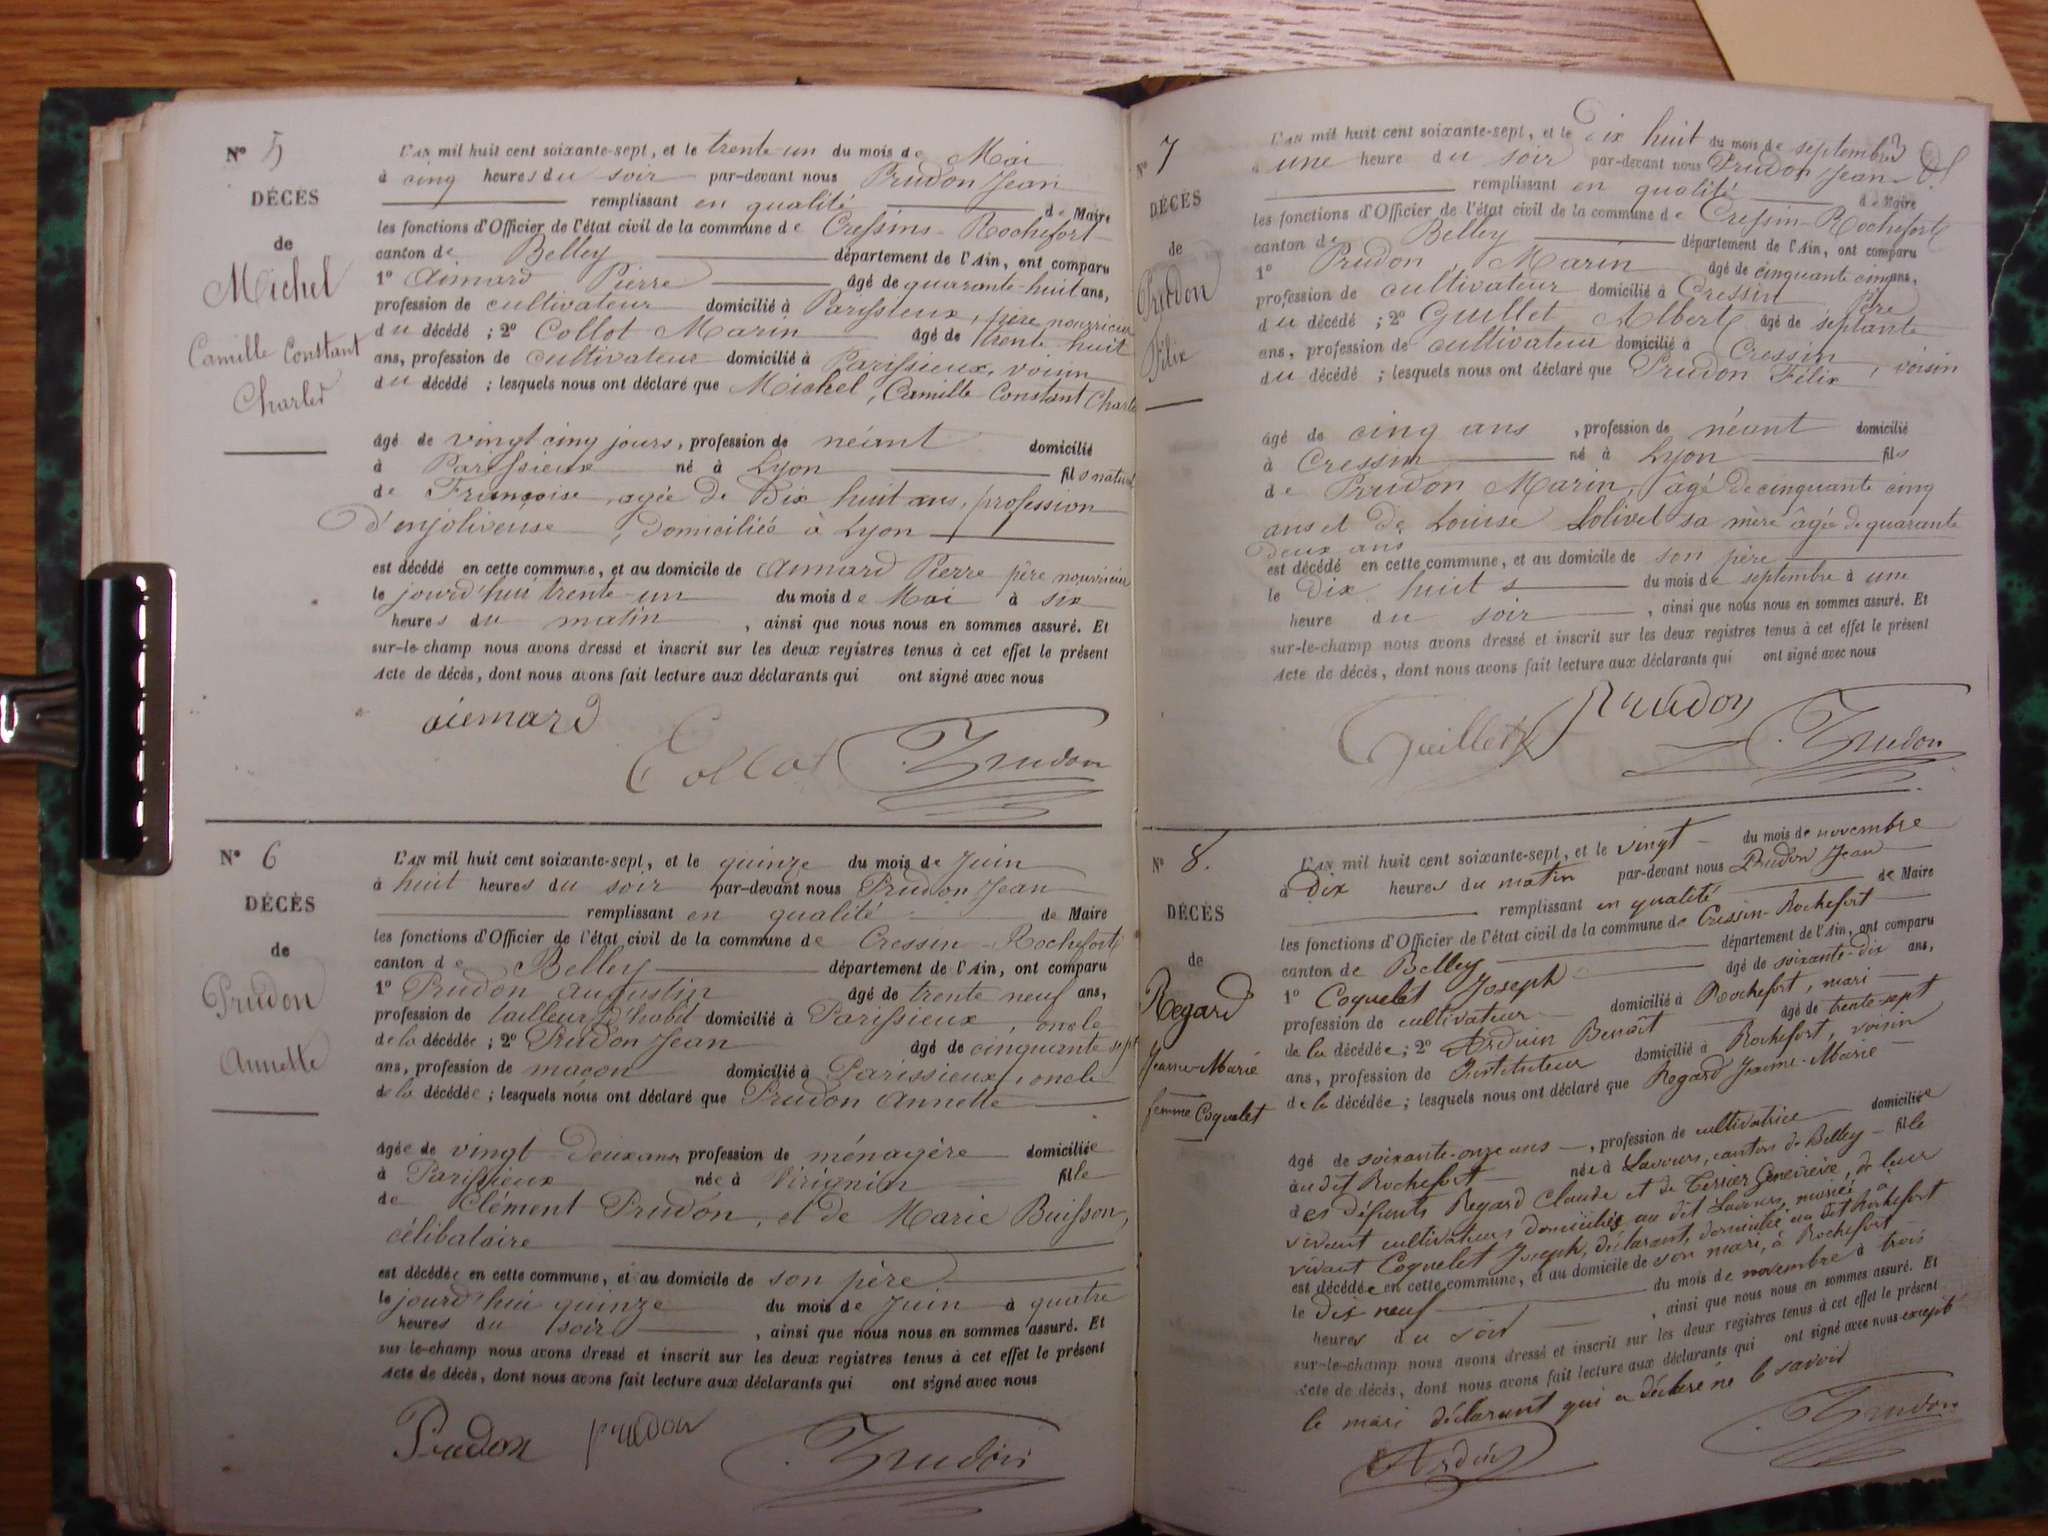 N° 5
DÉCÈS
de
Michel
Camille Constant
Charles
L'AN mil huit cent soixante-sept, et le trente un du mois de Mai
à cinq heures du soir par-devant nous Prudon Jean
remplissant en qualité de Maire
les fonctions d'Officier de l'état civil de la commune de Cressins-Rochefort
canton de Belley département de l'Ain, ont comparu
1° Aimard Pierre âgé de quarante-huit ans,
profession de cultivateur domicilié à Parissieux, père nourricier
du décédé ; 2° Collot Marin âgé de trente-huit
ans, profession de cultivateur domicilié à Parissieux, voisin
du décédé ; lesquels nous ont déclaré que Michel, Camille Constant Charles
âgé de vingt cinq jours, profession de néant domicilié
à Parissieux né à Lyon fils naturel
de Françoise, agée de Dix huit ans, profession
d'enjoliveuse, Domiciliée à Lyon
est décédé en cette commune, et au domicile de Aimard Pierre père nourricier
le jourd'hui trente-un du mois de Mai à six
heures du matin, ainsi que nous nous en sommes assuré. Et
sur-le-champ nous avons dressé et inscrit sur les deux registres tenus à cet effet le présent
Acte de décès, dont nous avons fait lecture aux déclarants qui ont signé avec nous
aiemard
Collot Prudon
N° 6
DÉCÈS
de
Prudon
Annette
L'AN mil huit cent soixante-sept, et le quinze du mois de Juin
à huit heures du soir par-devant nous Prudon Jean
remplissant en qualité de Maire
les fonctions d'Officier de l'état civil de la commune de Cressin-Rochefort
canton de Belley département de l'Ain, ont comparu
1° Prudon augustin âgé de trente neuf ans,
profession de tailleur d'habit domicilié à Parissieux, oncle
de la décédée ; 2° Prudon Jean âgé de cinquante sept
ans, profession de maçon domicilié à Parissieux, oncle
de la décédée ; lesquels nous ont déclaré que Prudon Annette
âgée de vingt-Deux ans, profession de ménagère domiciliée
à Parissieux née à Virignin fille
de Clément Prudon, et de Marie Buisson,
célibataire
est décédée en cette commune, et au domicile de son père
le jourd'hui quinze du mois de Juin à quatre
heures du soir, ainsi que nous nous en sommes assuré. Et
sur-le-champ nous avons dressé et inscrit sur les deux registres tenus à cet effet le présent
Acte de décès, dont nous avons fait lecture aux déclarants qui ont signé avec nous
Prudon prudon Prudon
N° 7
DÉCÈS
de
Prudon
Félix
L'AN mil huit cent soixante-sept, et le Dix huit du mois de septembre
à une heure du soir par-devant nous Prudon Jean
remplissant en qualité de Maire
les fonctions d'Officier de l'état civil de la commune de Cressin-Rochefort
canton de Belley département de l'Ain, ont comparu
1° Prudon, Marin âgé de cinquante cinq ans,
profession de cultivateur domicilié à Cressin, Père
du décédé ; 2° Guillet Albert âgé de septante
ans, profession de cultivateur domicilié à Cressin, voisin
du décédé ; lesquels nous ont déclaré que Prudon Félix
âgé de cinq ans, profession de néant domicilié
à Cressin né à Lyon fils
de Prudon Marin, âgé de cinquante cinq
ans et de Louise Lolivet sa mère âgée de quarante
deux ans
est décédé en cette commune, et au domicile de son père
le Dix huit du mois de septembre à une
heure du soir, ainsi que nous nous en sommes assuré. Et
sur-le-champ nous avons dressé et inscrit sur les deux registres tenus à cet effet le présent
Acte de décès, dont nous avons fait lecture aux déclarants qui ont signé avec nous
Guillet Prudon Prudon
N° 8.
DÉCÈS
de
Regard
Jeanne-Marie
femme Coquelet
L'AN mil huit cent soixante-sept, et le vingt du mois de novembre
à Dix heures du matin par-devant nous Prudon Jean
remplissant en qualité de Maire
les fonctions d'Officier de l'état civil de la commune de Cressin-Rochefort
canton de Belley département de l'Ain, ont comparu
1° Coquelet Joseph âgé de soixante-dix ans,
profession de cultivateur domicilié à Rochefort, mari
de la décédée ; 2° Arduin Benoît âgé de trente sept
ans, profession de Instituteur domicilié à Rochefort, voisin
de la décédée ; lesquels nous ont déclaré que Regard Jeanne-Marie
âgé de soixante-onze ans, profession de cultivatrice domiciliée
au dit Rochefort née à Lavours, canton de Belley fille
des défunts Regard Claude et de Tessier Geneviève, de leur
vivant cultivateurs domiciliés au dit Lavours, mariée à
vivant Coquelet Joseph, déclarant, domicilié au dit Rochefort
est décédée en cette commune, et au domicile de son mari, à Rochefort
le Dix neuf du mois de novembre à trois
heures du soir, ainsi que nous nous en sommes assuré. Et
sur-le-champ nous avons dressé et inscrit sur les deux registres tenus à cet effet le présent
Acte de décès, dont nous avons fait lecture aux déclarants qui ont signé avec nous excepté
le mari déclarant qui a déclaré ne le savoir
Arduin Prudon